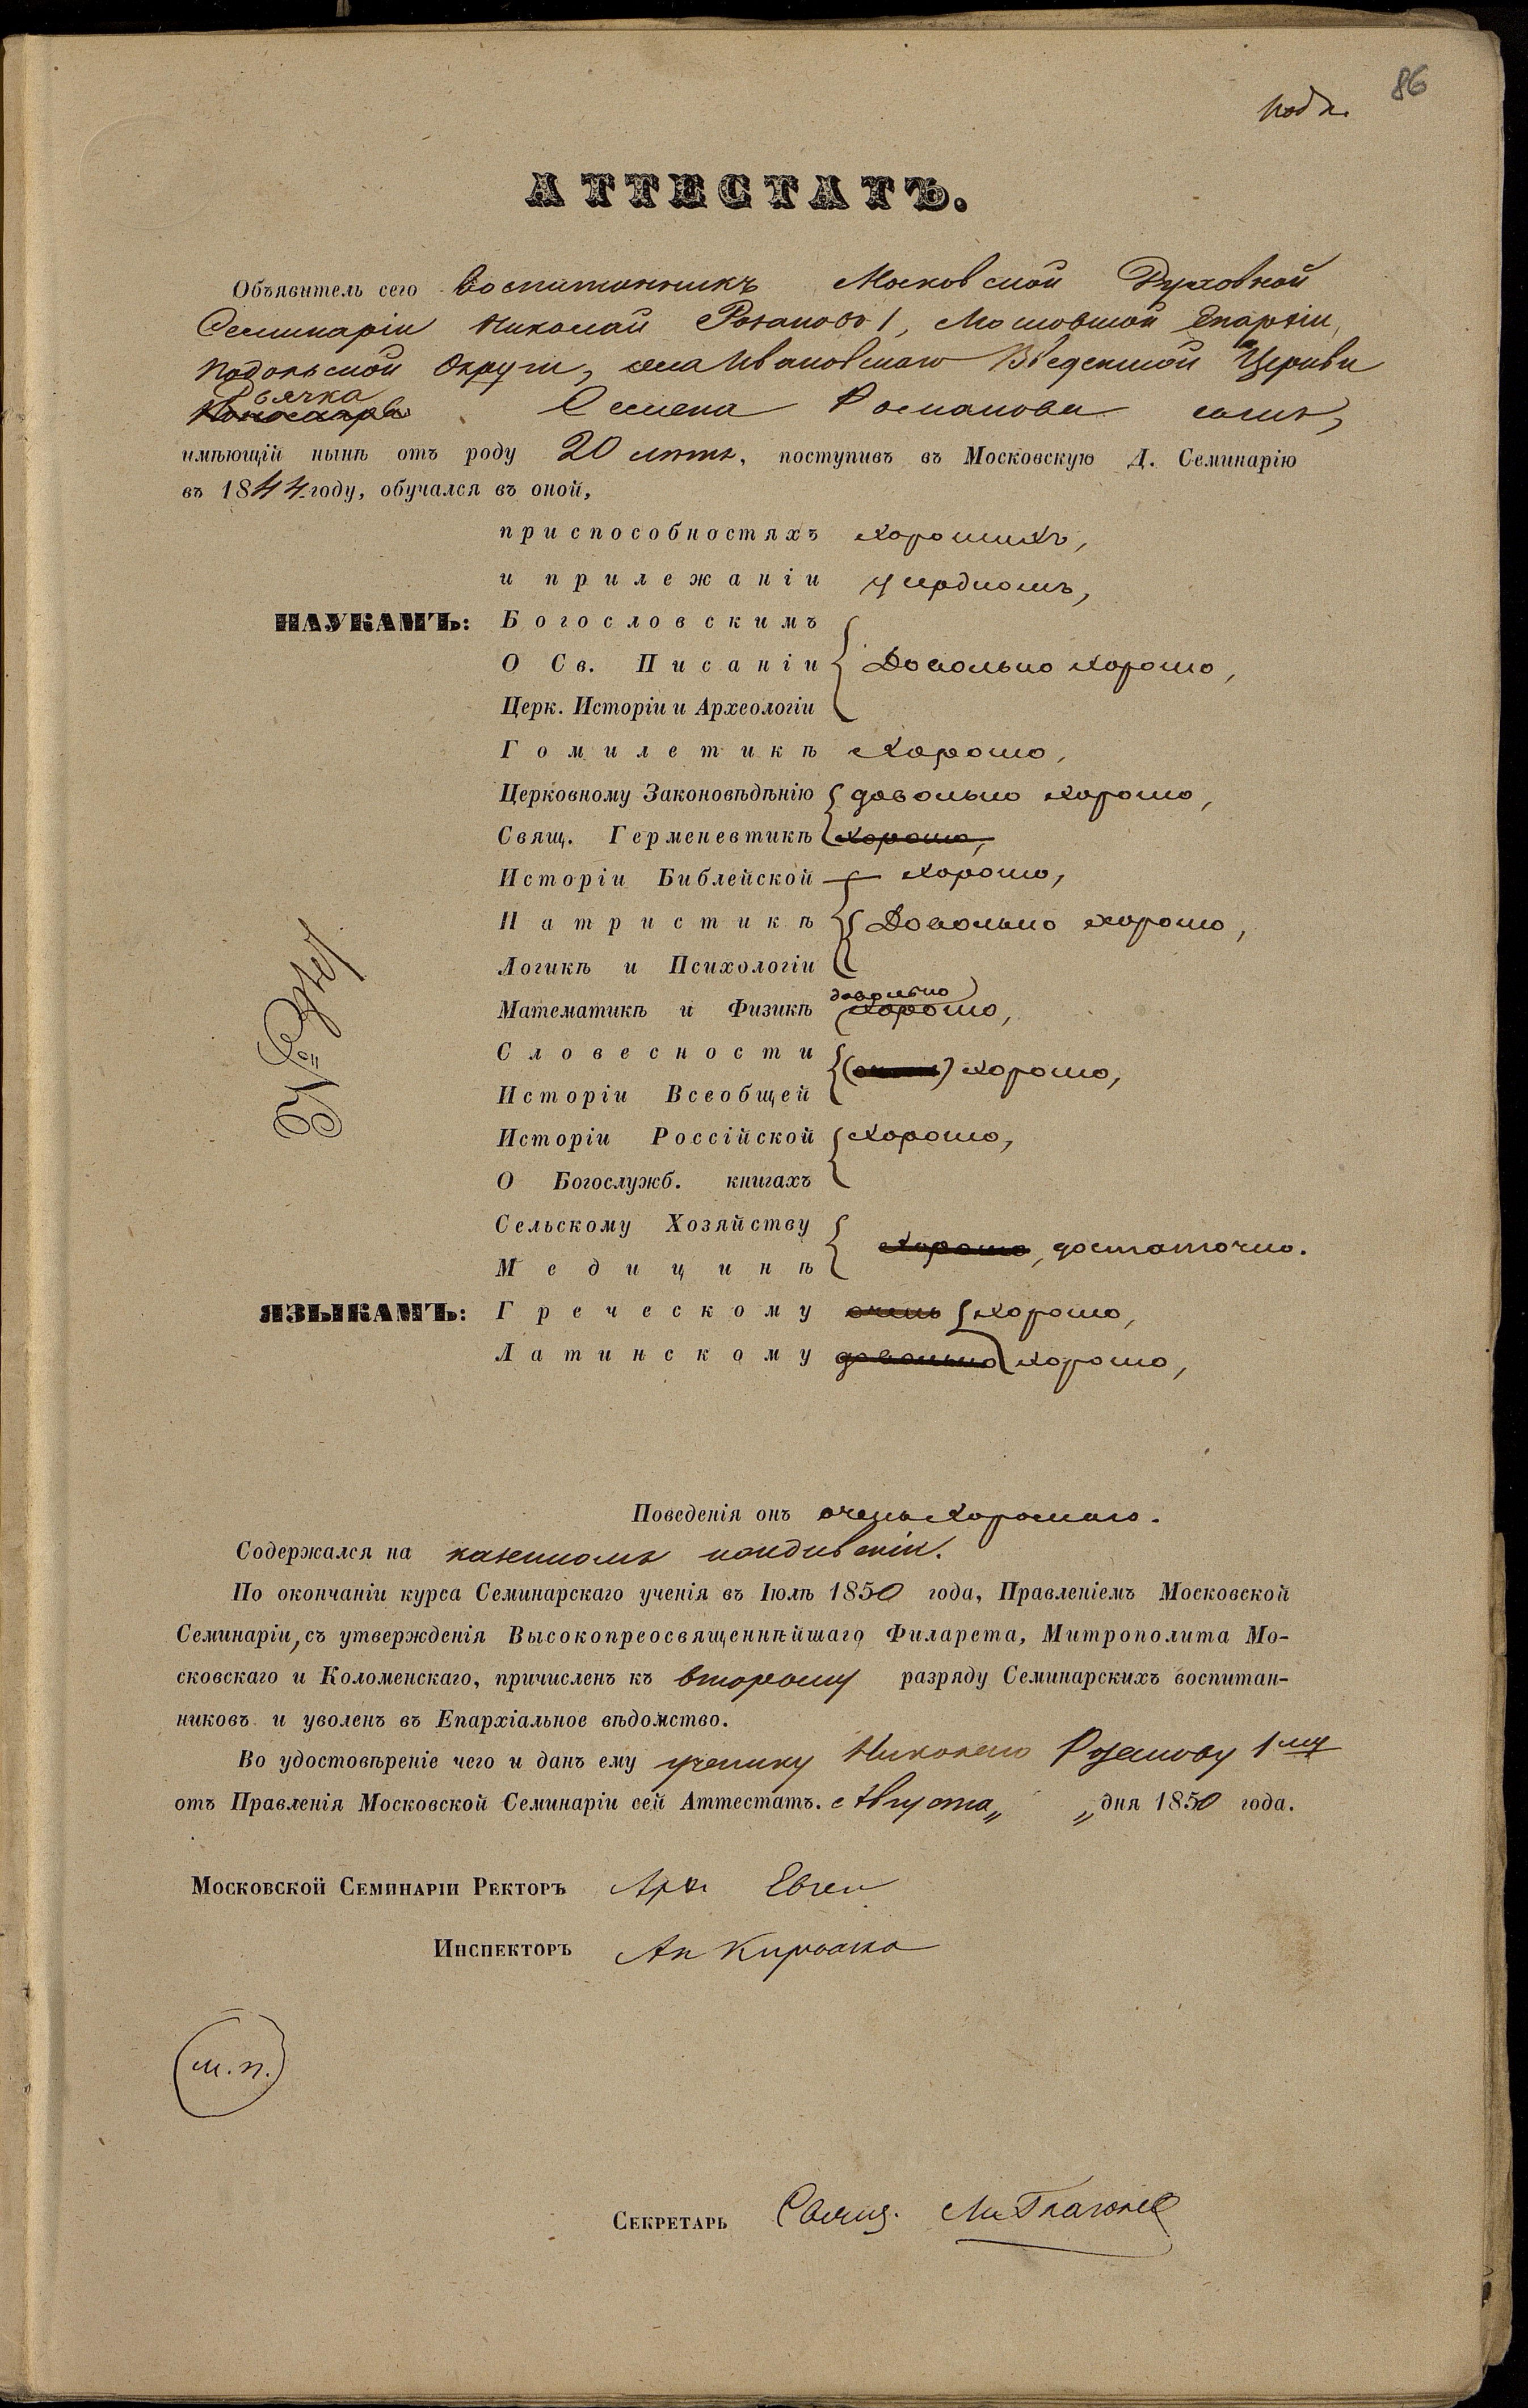 86
АТТЕСТАТЪ.
Объявитель сего воспитанникъ Московской Духовной
Семинаріи Николай Розановъ 1, Московской Епархіи,
Подольской Округи, села Ивановскаго Введенской Церкви
Дьячка
Пономаря Семена Романова сынъ,
имѣющій нынѣ отъ роду 20 лѣтъ, поступивъ въ Московскую Д. Семинарію
въ 1844 году, обучался въ оной,
при способностяхъ хорошихъ,
и прилежаніи усердномъ,
НАУКАМЪ: Богословскимъ
О Св. Писаніи Довольно хорошо,
Церк. Исторіи и Археологіи
Гомилетикѣ Хорошо,
Церковному Законовѣдѣнію довольно хорошо,
Свящ. Герменевтикѣ хорошо,
Исторіи Библейской хорошо,
Патристикѣ Довольно хорошо,
Логикѣ и Психологіи
довольно
Математикѣ и Физикѣ хорошо,
Словесности
очень хорошо,
Исторіи Всеобщей
Исторіи Россійской Хорошо,
О Богослужб. книгахъ
Сельскому Хозяйству
Хорошо, достаточно.
Медицинѣ
ЯЗЫКАМЪ: Греческому очень хорошо,
Латинскому довольно хорошо,
Поведенія онъ очень хорошаго.
Содержался на казенномъ иждивеніи.
По окончаніи курса Семинарскаго ученія въ Іюлѣ 1850 года, Правленіемъ Московской
Семинаріи, съ утвержденія Высокопреосвященнѣйшаго Филарета, Митрополита Мо-
сковскаго и Коломенскаго, причисленъ къ второму разряду Семинарскихъ воспитан-
никовъ и уволенъ въ Епархіальное вѣдомство.
Во удостовѣреніе чего и данъ ему ученику Николаю Розанову 1му
отъ Правленія Московской Семинаріи сей Аттестатъ. Августа „ „ дня 1850 года.
Московской Семинаріи Ректоръ Арх Евген
Инспекторъ
м.п.
Секретарь